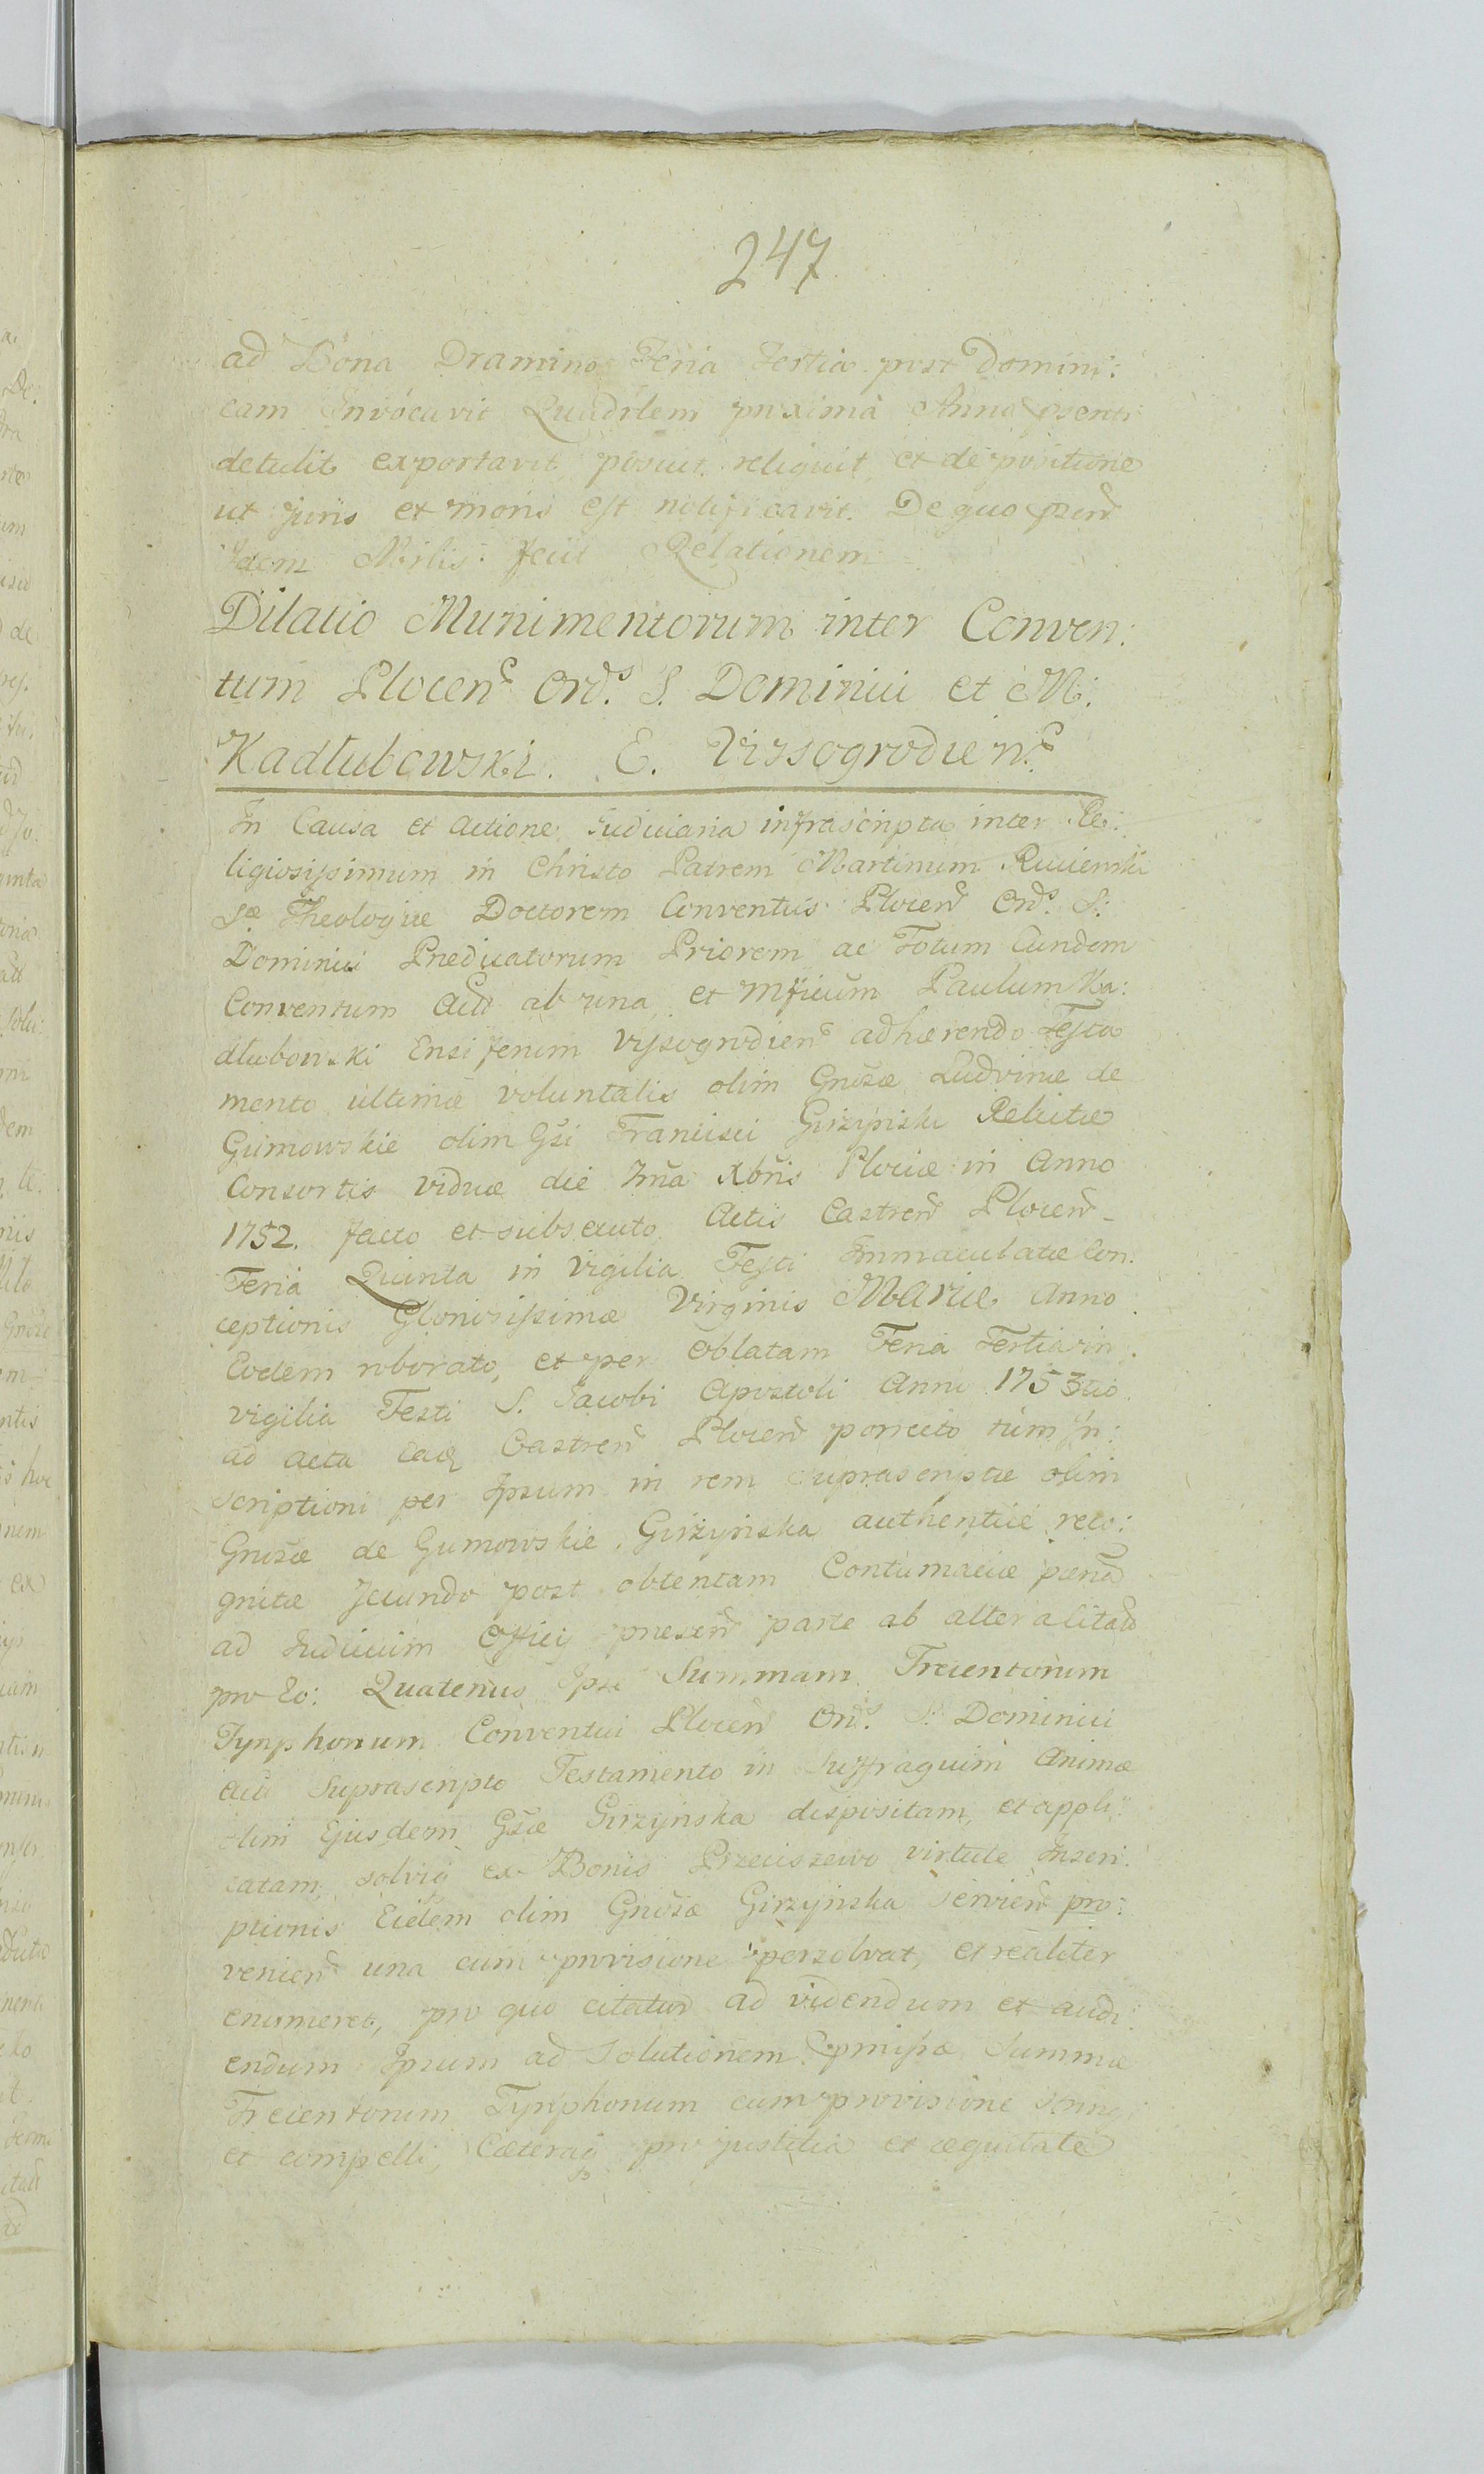 247
ad Bona Dramino Feria Tertia post Domini:
cam Invocavit Quadrlem proxima Anno psenti
detulit exportavit, posuit reliquit et de positione
ut juris et moris est notificavit. De quo psens
Idem Nbilis fecit Relationem
Dilatio Munimentorum inter Conven:
tum Plocens Ords S. Dominici et M.
Kadłubowski. E. Vissogrodiens
In Causa et Actione Judiciaria infrascripta inter Re:
ligiosissimum in Christo Patrem Martinum
Sæ Theologiæ Doctorem Conventus Plocens Ords S.
Dominici Prædicatorum Priorem ac Totum Eundem
Conventum Act ab una, et Mficum Paulum Ka:
dłubowski Ensiferum Vyssogrodiens adhærendo Testa
mento ultimæ voluntatis olim Gnosæ Ludvinæ de
Gumowskie olim Gsi Francisci Girzynski Relictæ
Consortis viduæ die Ima Xbris Plociæ in Anno
1752. facto et subsecuto Actis Castren Plocen
Feria Quinta in Vigilia Festi Immaculatæ Con:
ceptionis Gloriosissimæ Virginis MARIÆ Anno
Eodem roborato, et per Oblatam Feria Tertia in
vigilia Festi S. Jacobi Apostoli Anni 1753tio
ad Acta Eadq Castren Plocen porrecto tum In:
scriptioni per Ipsum in rem suprascriptæ olim
Gnosæ de Gumowskie Girzynska authentice reco:
gnitæ secundo post obtentam Contumaciæ pænā
ad Judicium Officij præsen parte ab altera citatū
pro Eo: Quatenus Ipse Summam Trecentorum
Tynphonum Conventui Plocen Ords S. Dominici
Act Suprascripto Testamento in Suffragium Animæ
olim Ejusdem Gsæ Girzynska dispositam, et appli:
catam, solvi ex Bonis Przeciszewo virtute Inscri:
ptionis Eidem olim Gnosæ Girzynska servien pro:
venien una cum provisione persolvat, et realiter
enumeret, pro quo citatur ad videndum et audi:
endum Ipsum ad Solutionem pmissæ Summæ
Trecentorum Tynphonum cum provisione stringi
et compelli, Cæteraq pro justitia et æquitate